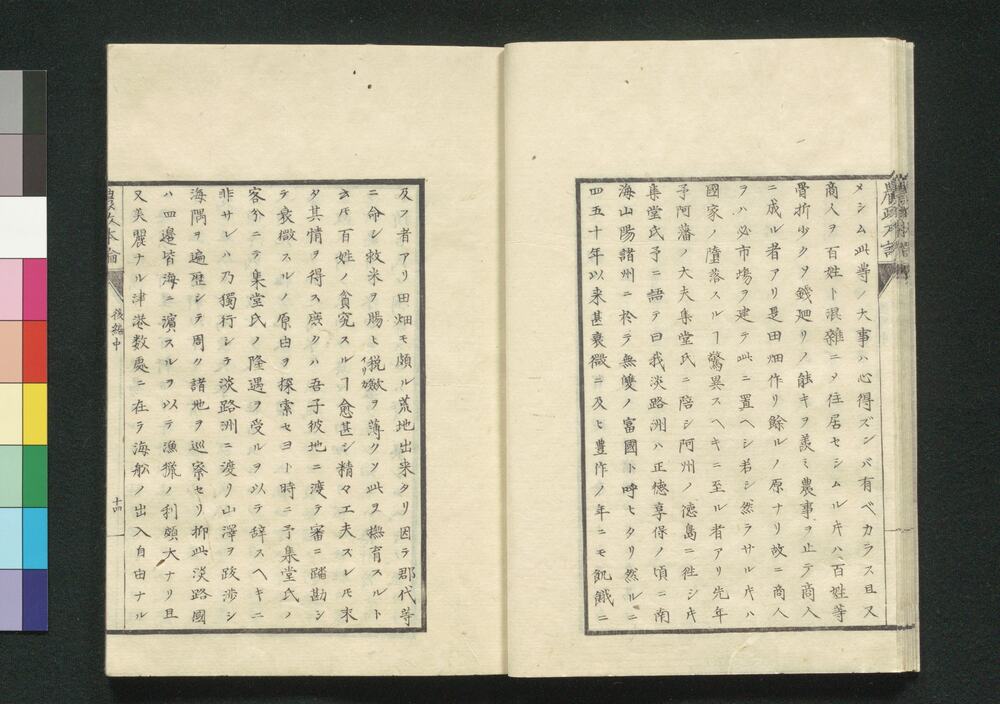 メシム此等ノ大事ハ心得ズンバ有ベカラス且又
商人ヲ百姓ト混雜ニメ住居セシムル𪜈ハ百姓等
骨折少クメ錢廻リノ能キヲ羨ミ農事ヲ止テ商人
ニ成ル者アリ是田畑作リ餘ルノ原ナリ故ニ商人
ヲハ必市塲ヲ建テ此ニ置ヘシ若シ然ラサル𪜈ハ
國家ノ墮落スルヿ驚異スヘキニ至ル者アリ先年
予阿藩ノ大夫集堂氏ニ陪シ阿州ノ德島ニ徃シ𪜈
集堂氏予ニ語テ曰我淡路洲ハ正德享保ノ頃ニ南
海山陽諸州ニ於テ無雙ノ富國ト呼ヒタリ然ルニ
四五十年以来甚衰微ニ及ヒ豊作ノ年ニモ飢餓ニ
及フ者アリ田畑モ頗ル荒地出来タリ因テ郡代等
ニ命シ救米ヲ賜ヒ税斂ヲ薄クメ此ヲ撫育スルト
云𪜈百姓ノ貧究スルヿ愈甚シ精々工夫スレ𪜈未
タ其情ヲ得ス庶クハ吾子彼地ニ渡テ審ニ踏勘シ
テ衰微スルノ原由ヲ探索セヨト時ニ予集堂氏ノ
客分ニテ集堂氏ノ隆遇ヲ受ルヲ以テ辞スヘキニ
非サレハ乃獨行シテ淡路洲ニ渡リ山澤ヲ跋渉シ
海隅ヲ遍歴シテ周ク諸地ヲ巡察セリ抑此淡路國
ハ四邊皆海ニ濱スルヲ以テ漁獵ノ利頗大ナリ且
又美麗ナル津港数處ニ在テ海舩ノ出入自由ナル
後編中
十四